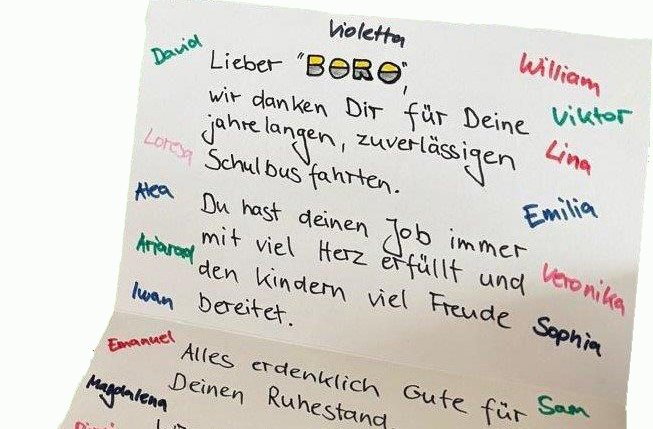 Violetta
David
Lieber "BORO",
William
wir danken Dir für Deine
Viktor
jahrelangen, zuverlässigen
Lina
Schulbusfahrten.
Alea
Emilia
Du hast deinen Job immer
mit viel Herz erfüllt und
Veronika
den Kindern viel Freude
Iwan
bereitet.
Sophia
Emanuel
Alles erdenklich Gute für
Sam
Magdalena
Deinen Ruhestand